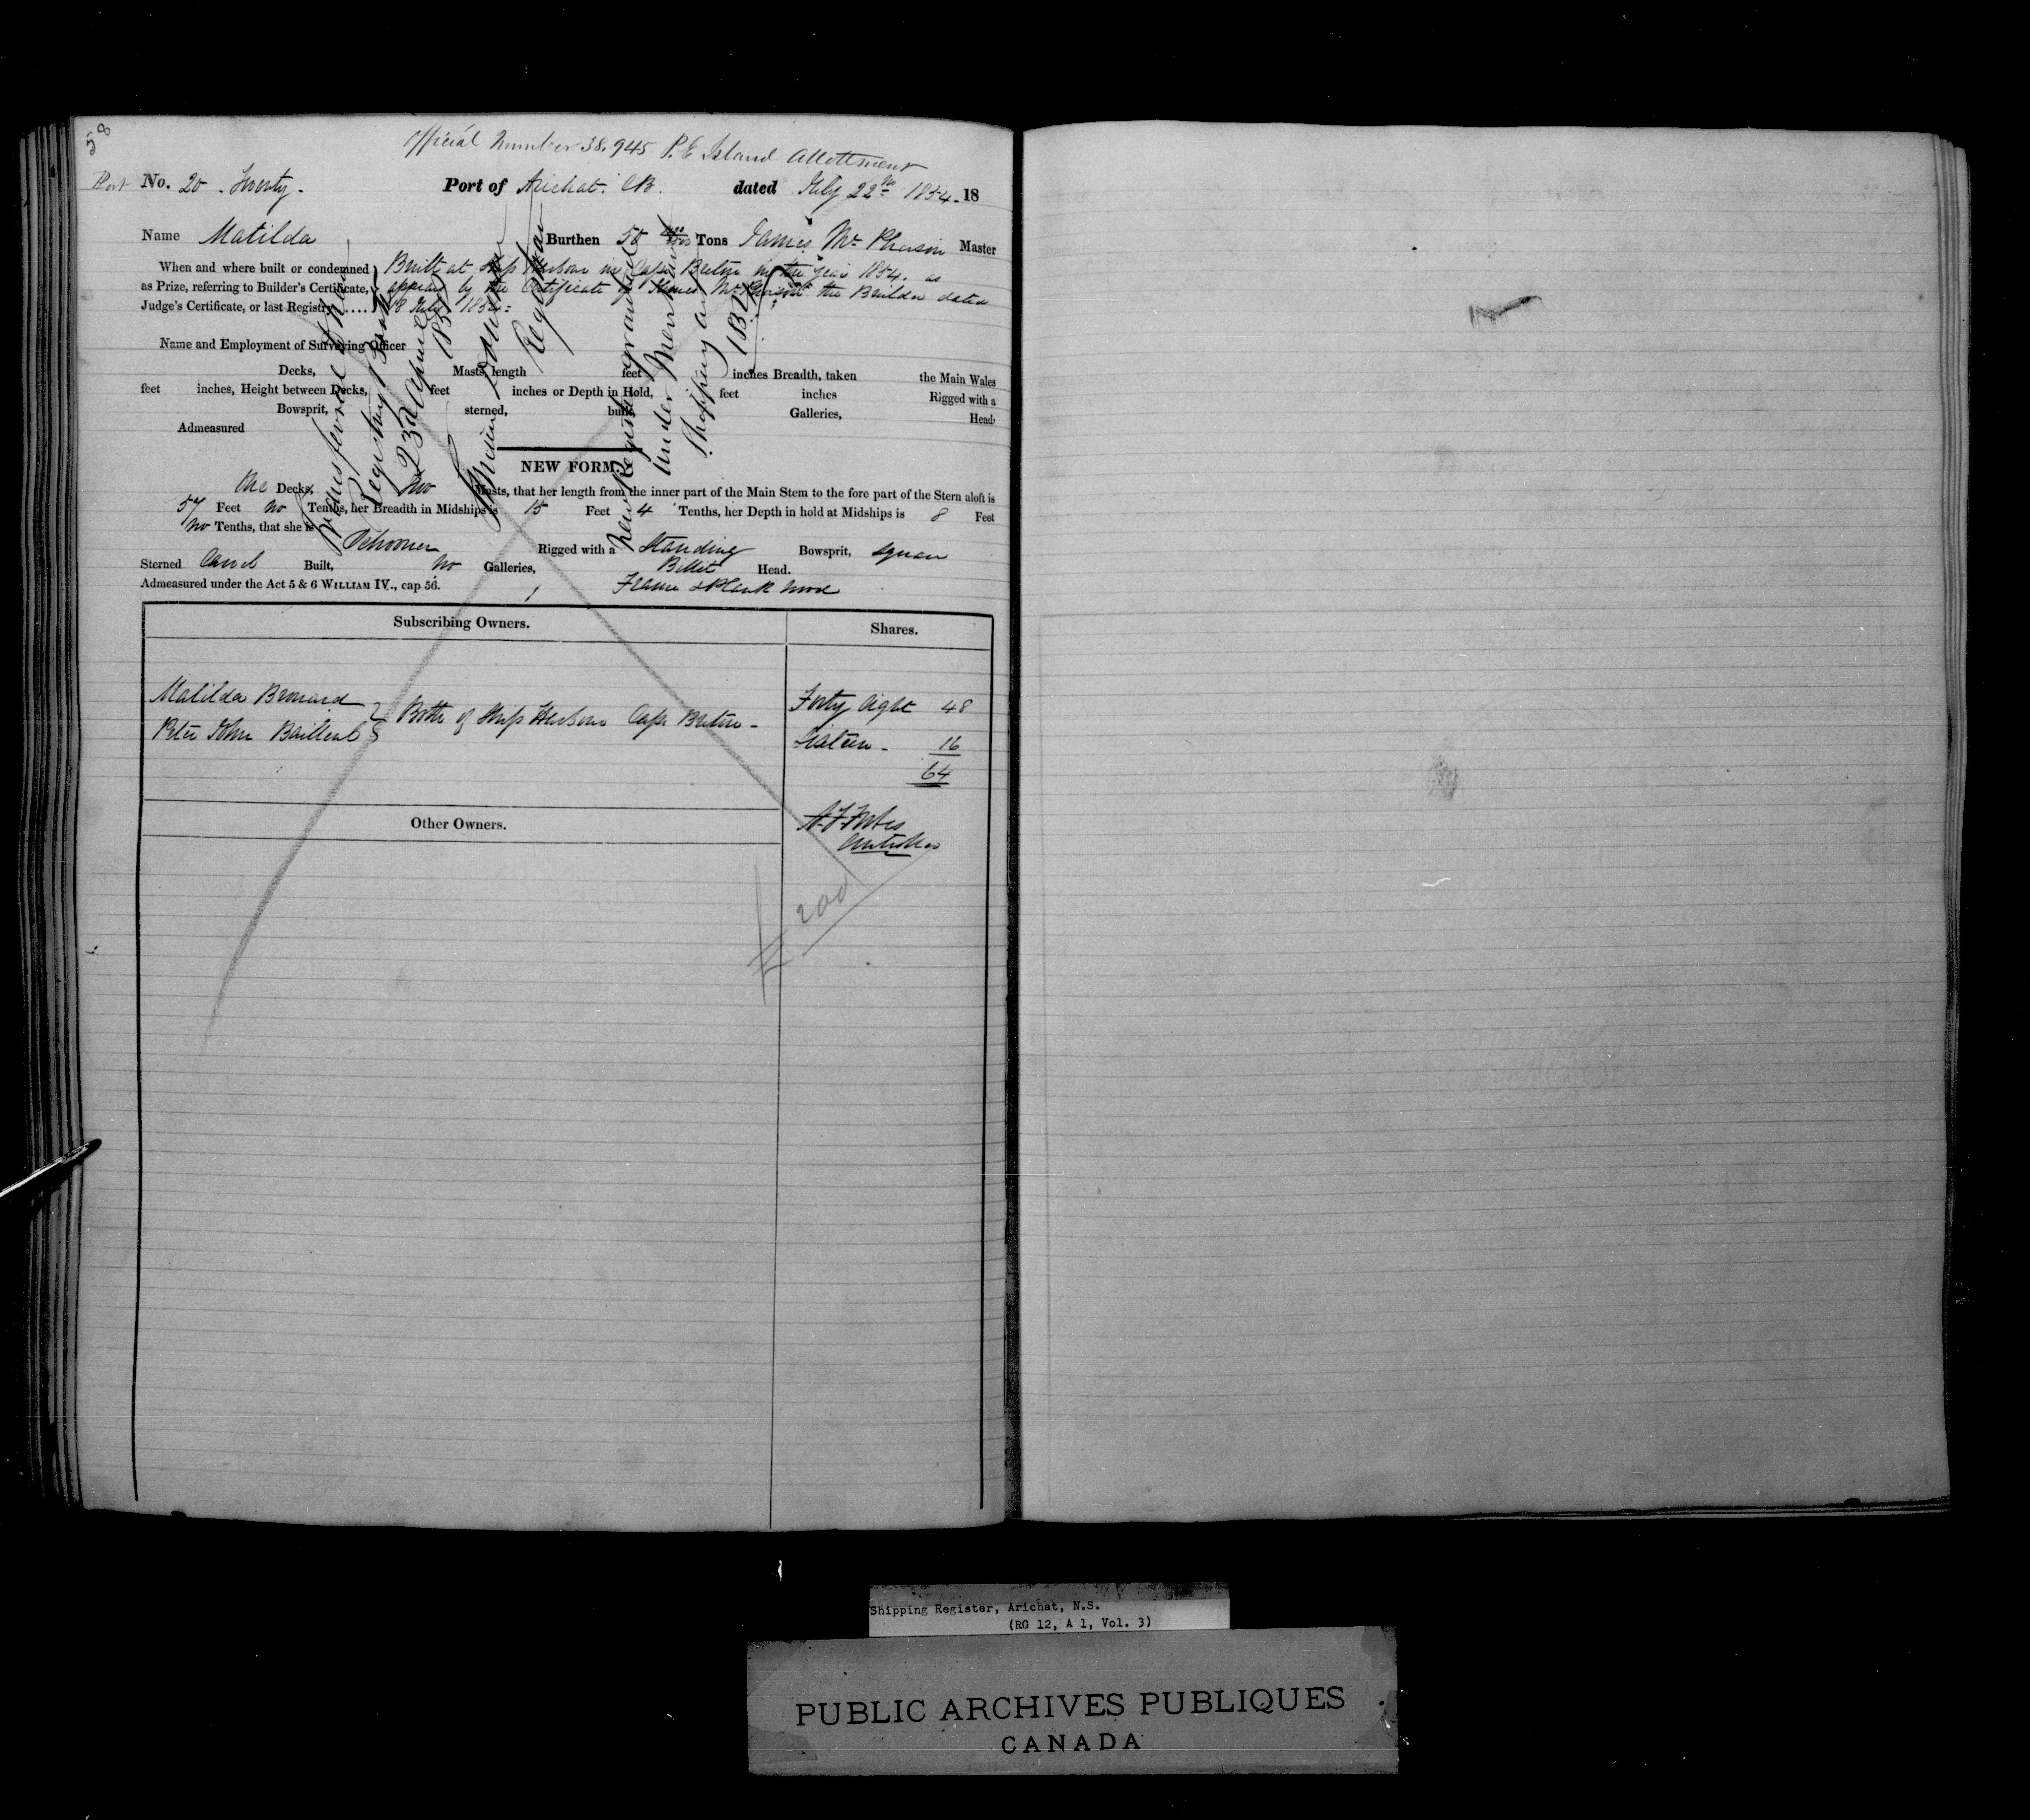 58
Official Number 38.945 P. E Island Allottment
Port No. 20 . Twenty . Port of Arichat. CB. dated July 22nd 1854. 18
Name Matilda Burthen 50 Tons James Mc Pherson Master
When and where built or condemned as Prize, referring to Builder's Certificate, Judge's Certificate, or last Registry ....
Built at Ship Harbour in Cape Breton in the year 1854. as
appears by the Certificate of James McPherson the Builder dated
18 July 1854
Name and Employment of Surveying Officer
Decks, Masts, length feet inches Breadth, taken the Main Wales
feet inches, Height between Decks, feet inches or Depth in Hold, feet inches Rigged with a
Bowsprit, sterned, built Galleries, Head
Admeasured
NEW FORM.
One Decks, two Masts, that her length from the inner part of the Main Stem to the fore part of the Stern aloft is
57 Feet no Tenths, her Breadth in Midships is 15 Feet 4 Tenths, her Depth in hold at Midships is 8 Feet
no Tenths, that she is Schooner Rigged with a Standing Bowsprit, square
Sterned Carvel Built, no Galleries, Billet Head.
Admeasured under the Act 5 & 6 WILLIAM IV., cap 56. Frame & Plank Wood
Registry
23d April
Registrar
New Register granted
under Merchant
Shipping Act
Subscribing Owners. Shares.
Matilda Brouard Forty Eight 48
Peter John } Both of Ship Harbour Cape Breton - Sixteen - 16
64
Other Owners.
200
Shipping Register, Arichat, N.S.
(RG 12, A 1, Vol. 3)
PUBLIC ARCHIVES PUBLIQUES
CANADA